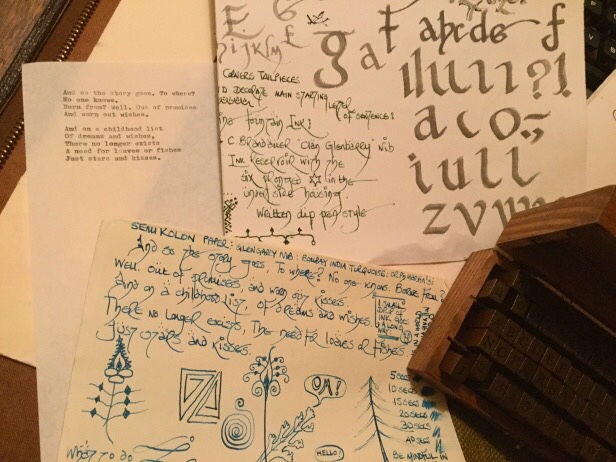 And so the story goes. To where?
No one knows.
Born from? Well. Out of promises
And worn out wishes.
And on a childhood list
Of dreams and wishes,
There no longer exists
A need for loaves or fishes
Just stars and kisses.
E
hijklm
g a t
abcde f
CORNERS TAILPIECES
DECORATE MAIN STARTING LETTER OF SENTENCES?
Fountain Ink:
C. Brandauer "Clan Glengarry Nib
Ink Reservoir with the
six pronged in the
under side housing.
Written dip pen style
?!
a c o
i u l l
z v
SEMIKOLON PAPER: GLENGARRY NIB: BOMBAY INDIA TURQUOISE: DR. PH. MARTIN'S
And so the story goes. To where? No one knows. Borne from?
Well. Out of promises and worn out kisses.
And on a childhood list, of dreams and wishes
There no longer exists, The need for loaves or fishes.
Just stars and kisses.
1 SMALL
DROP OF
INK GOES
A LONG
WAY!
OM!
HELLO!
5 SECS
10 SECS
15 SECS
20 SECS
30 SECS
40 SECS
BE MINDFUL IN
What to do